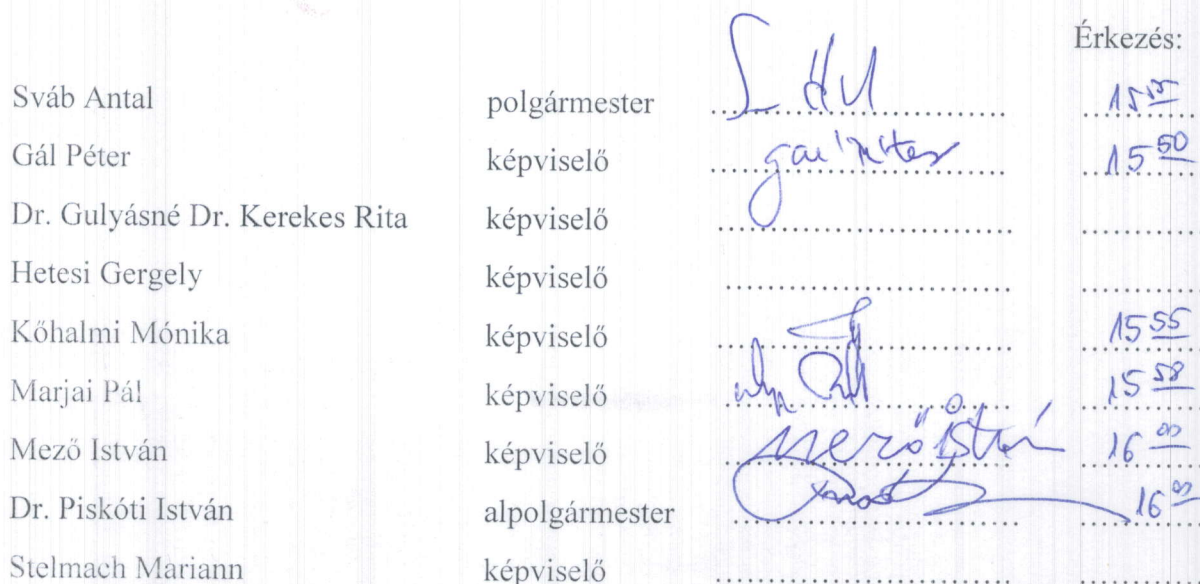 Érkezés:
Sváb Antal polgármester
Gál Péter képviselő Gál Péter 15 50
Dr. Gulyásné Dr. Kerekes Rita képviselő
Hetesi Gergely képviselő
Kőhalmi Mónika képviselő 15 55
Marjai Pál képviselő 15 58
Mező István képviselő Mező István 16 00
Dr. Piskóti István alpolgármester 16 00
Stelmach Mariann képviselő